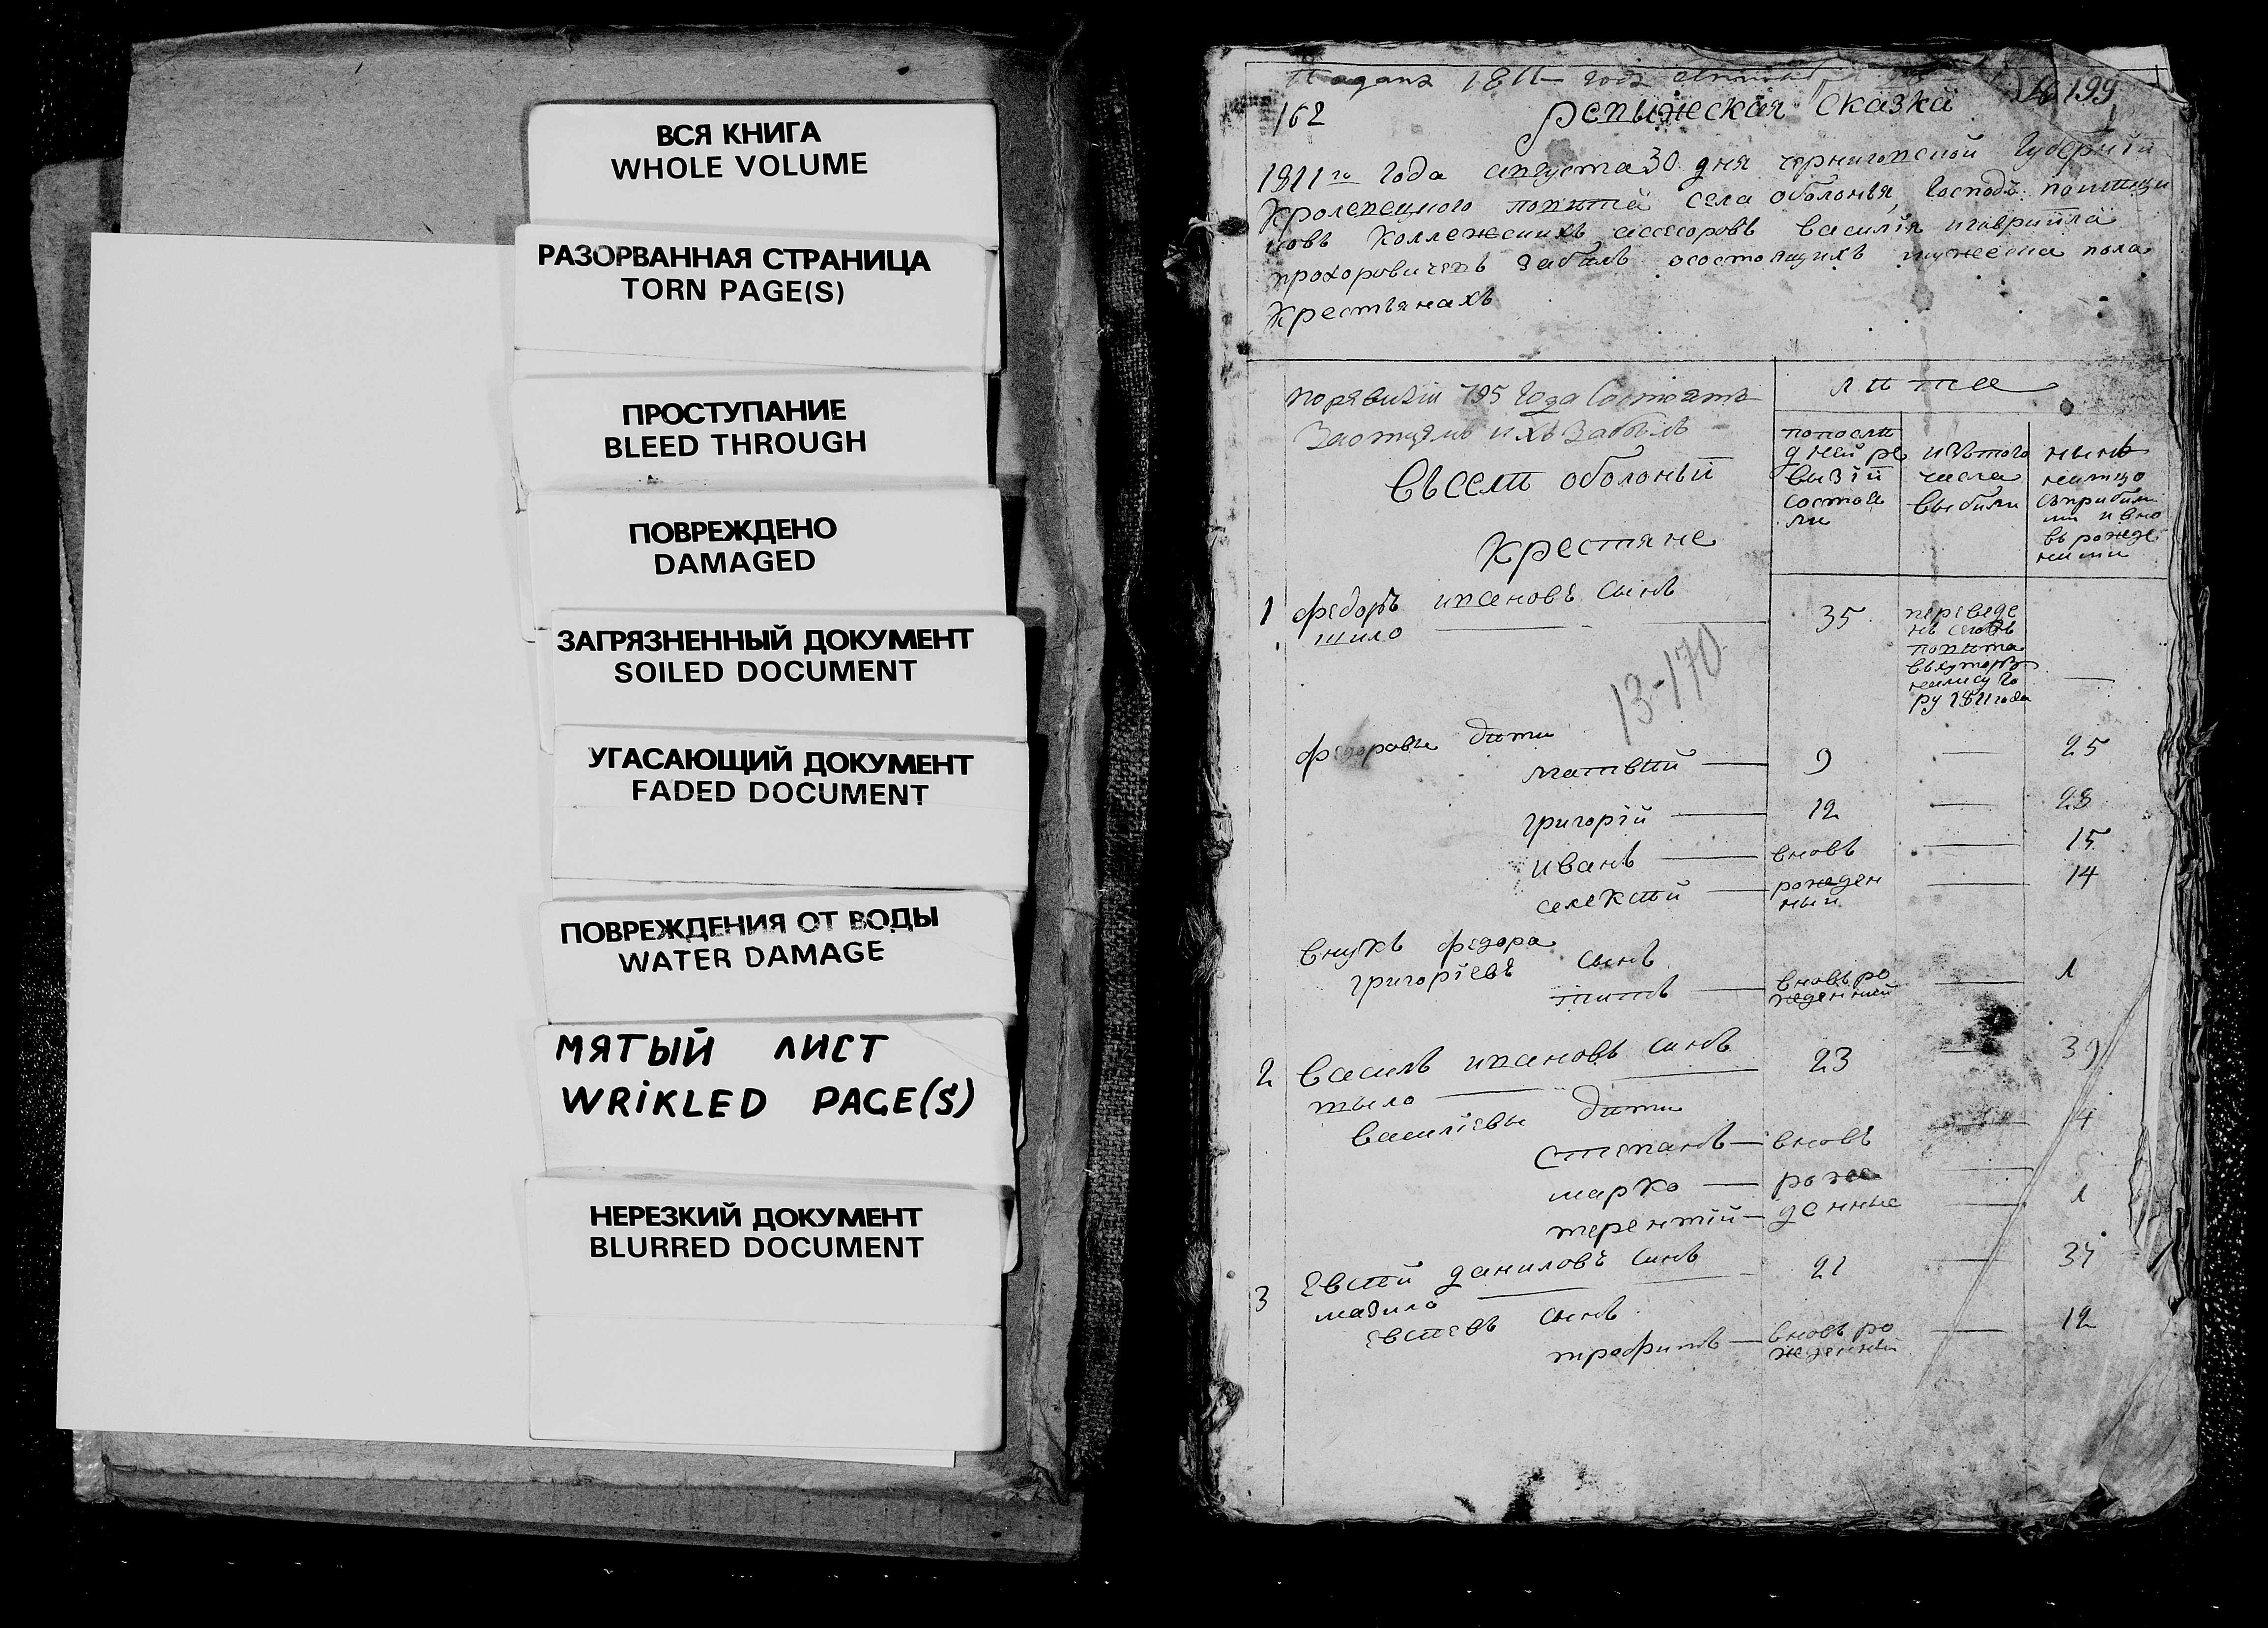 ВСЯ КНИГА
WHOLE VOLUME
РАЗОРВАННАЯ СТРАНИЦА
TORN PAGE(S)
ПРОСТУПАНИЕ
BLEED THROUGH
ПОВРЕЖДЕНО
DAMAGED
ЗАГРЯЗНЕННЫЙ ДОКУМЕНТ
SOILED DOCUMENT
УГАСАЮЩИЙ ДОКУМЕНТ
FADED DOCUMENT
ПОВРЕЖДЕНИЯ ОТ ВОДЫ
WATER DAMAGE
МЯТЫЙ ЛИСТ
WRiKLED PAGE(S)
НЕРЕЗКИЙ ДОКУМЕНТ
BLURRED DOCUMENT
1811 года
№ 199
162
Сказка
1811 го года августа 30 дня черниговской Губернїи
Кролевецкого повѣта села оболонья, Господъ помѣщи
ковъ Коллежскихъ ассесоровъ Василїя игаврїила
прохоровичевъ Забѣлъ осостоящихъ мужеска пола
Крестьянахъ
поревизїи 795 Года Состоятъ
Заотцемъ ихъ Забѣлъ
Въселѣ оболоньѣ
Крестяне
лѣта
попослѣ
дней ре
визїи
состоя
ли
изътого
числа
выбыли
нынѣ
налицо
съприбыли
ми ивно
въ рожде
ними
1 федоръ ивановъ сынъ 35
шило
переведе
нъ сеговъ
повѣта
въхуторъ
ру 1811 года
13-170
федоровы дѣти
матвѣй — 9 — 25
григорїй — 12 — 28
иванъ — вновъ — 15
алексѣй — рожден — 14
ный
внукъ федора
григорїевъ сынъ
титъ — вновъ ро — 1
жденный
2 Василь ивановъ синъ 23 — 39
тыло
василїевы дѣти
степанъ — вновъ — 4
марко — рож —
терентїй — денные — 1
3 Евсѣй даниловъ синъ 21 — 37
мазило
евсѣевъ сынъ
трофимъ — вновъ ро — 12
жденный